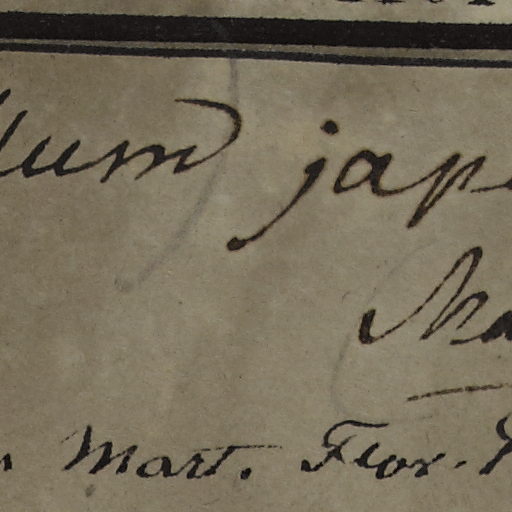 llum jap
Ma
Mart. Flor.